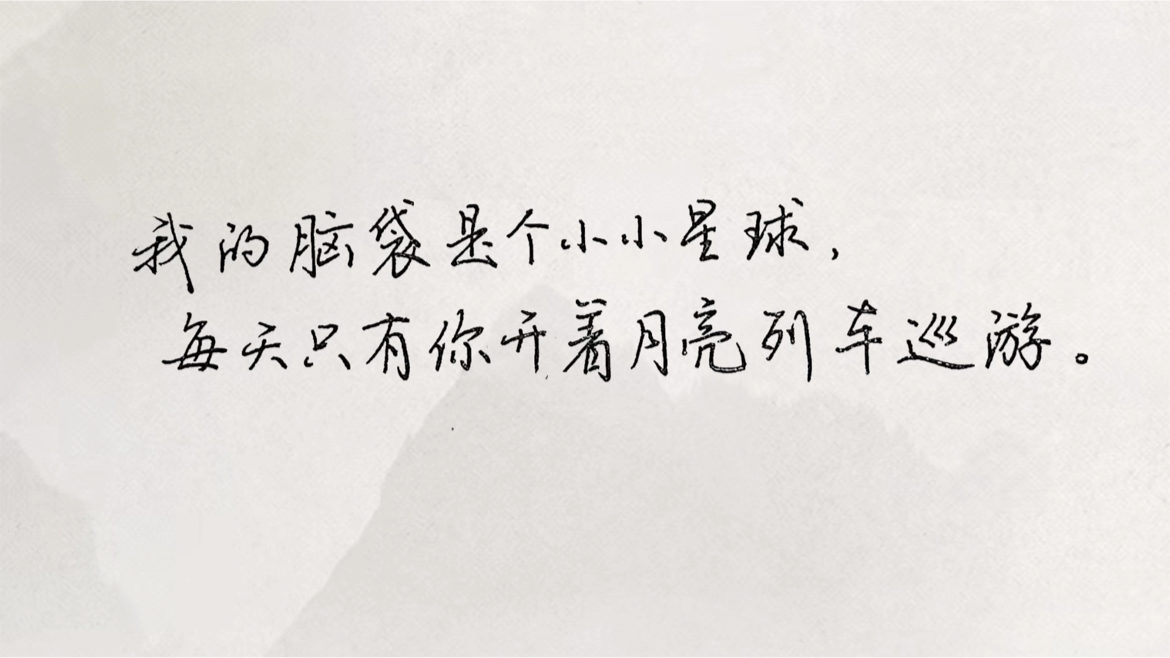 我的脑袋是个小小星球，
每天只有你开着月亮列车巡游。